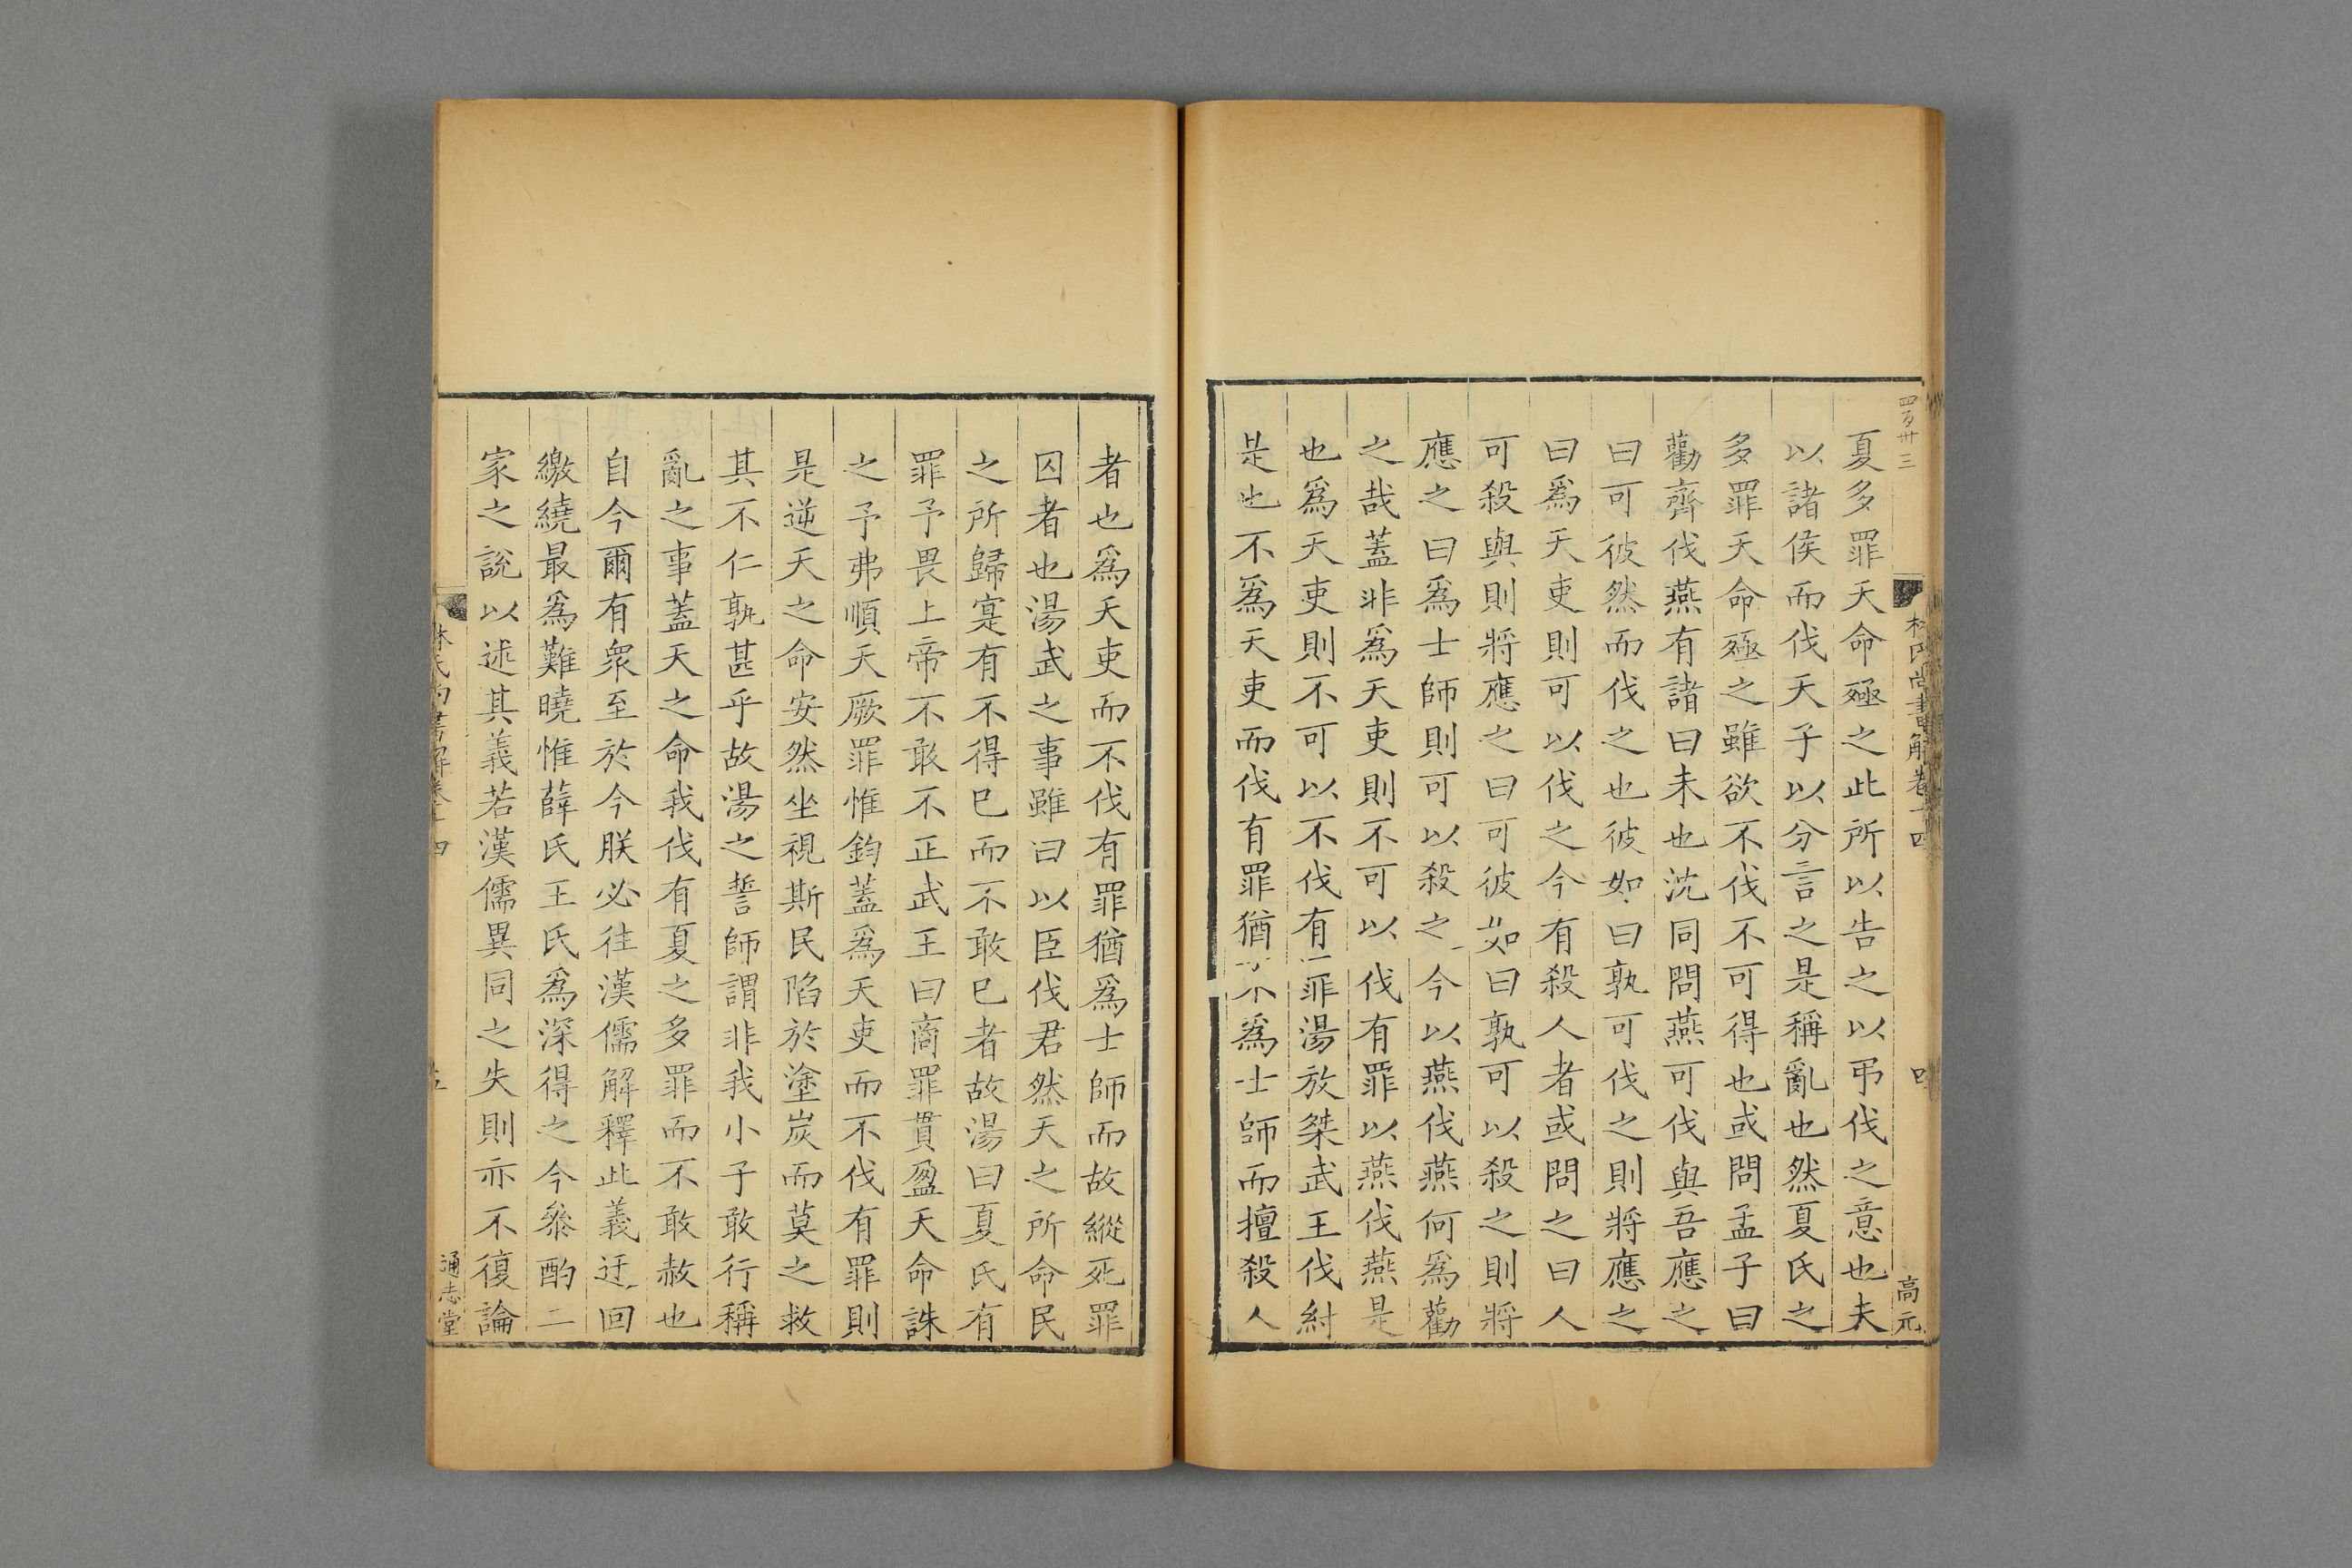 四百卅三
林氏尚書解卷十四
四
高元
夏多罪天命殛之此所以告之以弔伐之意也夫
以諸侯而伐天子以分言之是稱亂也然夏氏之
多罪天命殛之雖欲不伐不可得也或問孟子曰
勸齊伐燕有諸曰未也沈同問燕可伐與吾應之
曰可彼然而伐之也彼如曰孰可伐之則將應之
曰爲天吏則可以伐之今有殺人者或問之曰人
可殺與則將應之曰可彼如曰孰可以殺之則將
應之曰爲士師則可以殺之今以燕伐燕何爲勸
之哉蓋非爲天吏則不可以伐有罪以燕伐燕是
也爲天吏則不可以不伐有罪湯放桀武王伐紂
是也不爲天吏而伐有罪猶不爲士師而擅殺人
者也爲天吏而不伐有罪猶爲士師而故縱死罪
囚者也湯武之事雖曰以臣伐君然天之所命民
之所歸寔有不得已而不敢已者故湯曰夏氏有
罪予畏上帝不敢不正武王曰商罪貫盈天命誅
之予弗順天厥罪惟鈞蓋爲天吏而不伐有罪則
是逆天之命安然坐視斯民陷於塗炭而莫之救
其不仁孰甚乎故湯之誓師謂非我小子敢行稱
亂之事蓋天之命我伐有夏之多罪而不敢赦也
自今爾有衆至於今朕必往漢儒解釋此義迂回
繳繞最爲難曉惟薛氏王氏爲深得之今叅酌二
家之說以述其義若漢儒異同之失則亦不復論
林氏尚書解卷十四
五
通志堂